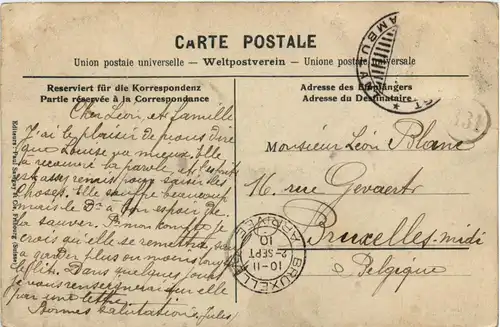 CARTE POSTALE
Union postale universelle – Weltpostverein – Unione postale universale
Reserviert für die Korrespondenz
Partie réservée à la Correspondance
Adresse des Empfängers
Adresse du Destinataire
Cher Léon, et famille
J'ai le plaisir de vous dire
que Louise va mieux. Elle
a recouvré la parole, et l'esprit
est assez pour saisir les
choses. Elle souffre beaucoup
mais le Dr a bon espoir de
la sauver. A mon compte je
crois qu'elle se remettra, sera
à garder plus ou moins longtemps
le lit. Dans quelques jours
je vous renseignerai sur elle
par une lettre.
Bonnes salutations. Jules
Monsieur Léon Blanc
16. rue Gevaert
Bruxelles-midi
Belgique
AMBULANT
331
BRUXELLES
10-11
2-SEPT
10
ARRIVÉE